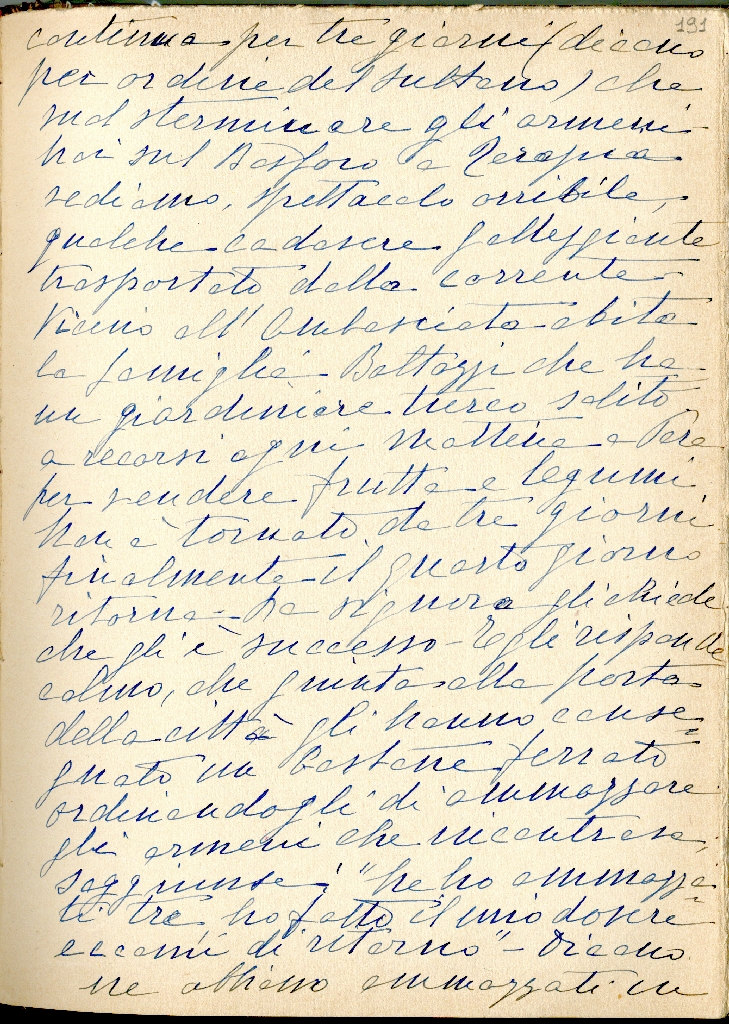 191
continua per tre giorni (dicono
per ordine del Sultano) che
vuol sterminare gli armeni
Noi sul Bosforo a Terapia
vediamo, spettacolo orribile,
qualche cadavere galleggiante
trasportato dalla corrente
Vicino all'Ambasciata abita
la famiglia Baltazzi che ha
un giardiniere turco solito
a recarsi ogni mattina a Pera
per vendere frutta e legumi
Non è tornato da tre giorni
finalmente il quarto giorno
ritorna - La signora gli chiede
che gli è successo - Egli risponde
calmo, che giunto alla porta
della città gli hanno conse=
gnato un bastone ferrato
ordinandogli di ammazzare
gli armeni che incontrava,
soggiunse: "ne ho ammazza=
ti tre, ho fatto il mio dovere
eccomi di ritorno" - Dicono
ne abbiano ammazzati in